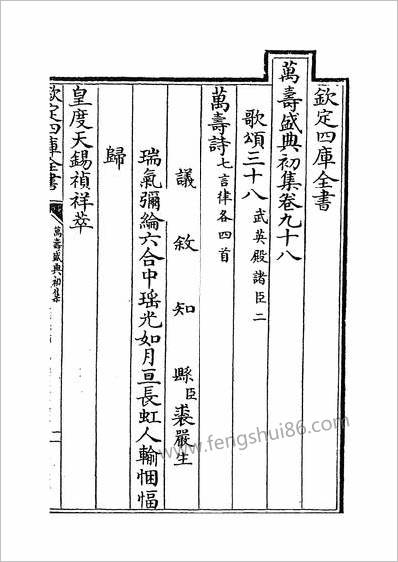 欽定四庫全書
萬壽盛典初集卷九十八
歌頌三十八 武英殿諸臣二
萬壽詩 七言律各四首
議敘知縣臣裘嚴生
瑞氣彌綸六合中瑤光如月亘長虹人輸悃愊
歸
皇度天錫禎祥萃
欽定四庫全書
萬壽盛典初集
www.fengshui86.com